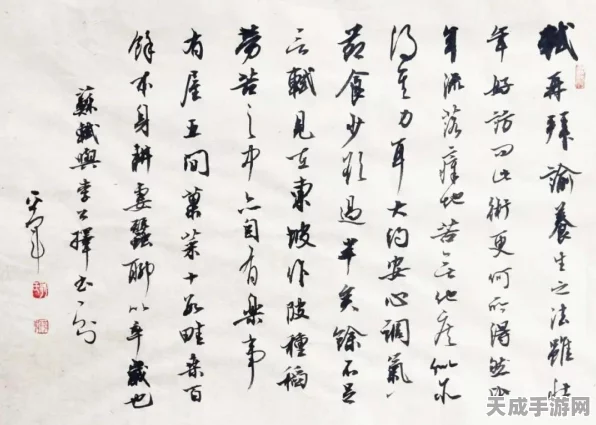 軾再拜諭養生之法雖壯
年好訪問此術更何所得然比
年流落瘴地苦無他疾似亦
得其力耳大約安心調氣
節食少欲過半矣餘不足
言軾見在東坡作陂種稻
勞苦之中亦自有樂事
有屋五間菓菜十數畦桑百
餘本身耕妻蠶聊以卒歲也
蘇軾與李公擇書一則
天成手游网